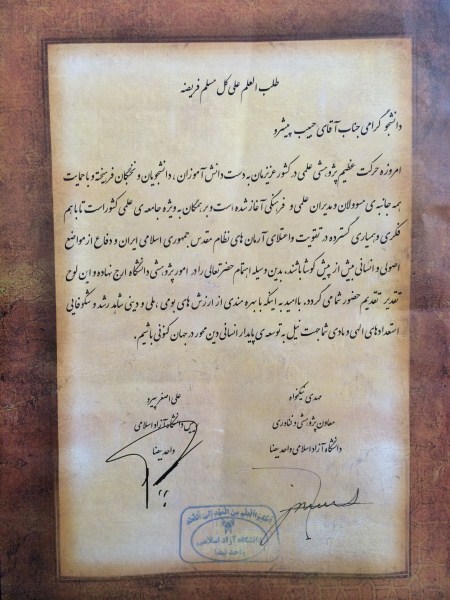 طلب العلم علی کل مسلم فریضه
دانشجو گرامی جناب آقای حبیب پیشرو
امروزه حرکت عظیم پژوهشی علمی در کشور عزیزمان به دست دانش آموزان ، دانشجویان و نخبگان فرهیخته و با حمایت
همه جانبه ی مسوولان و مدیران علمی و فرهنگی آغاز شده است و بر همگان به ویژه جامعه ی علمی کشور است تا با هم
فکری و همیاری گسترده در تقویت و اعتلای آرمان های نظام مقدس جمهوری اسلامی ایران و دفاع از مواضع
اصولی و انسانی بیش از پیش کوشا باشند، بدین وسیله اهتمام حضرتعالی را در امور پژوهشی دانشگاه ارج نهاده و این لوح
تقدیر تقدیم حضور شما می گردد. با امید به اینکه با بهره مندی از ارزش های بومی ، ملی و دینی شاهد رشد و شکوفایی
استعدادهای الهی و مادی شما جهت نیل به توسعه ی پایدار انسانی دین محور در جهان کنونی باشیم.
مهدی نیکخواه
معاون پژوهشی و فناوری
دانشگاه آزاد اسلامی واحد بیضا
علی اصغر پیرو
دانشگاه آزاد اسلامی
واحد بیضا
دانشگاه آزاد اسلامی
واحد بیضا